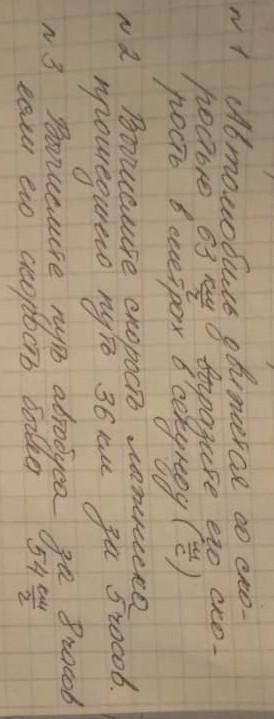 n 1 Автомобиль двигается со ско-
ростью 63 км/ч Выразите его ско-
рость в метрах в секунду (м/с)
n 2 Вычислите скорость лыжника
прошедшего путь 36 км за 5 часов.
n 3 Вычислите путь автобуса за 8 часов
если его скорость была 54 км/ч